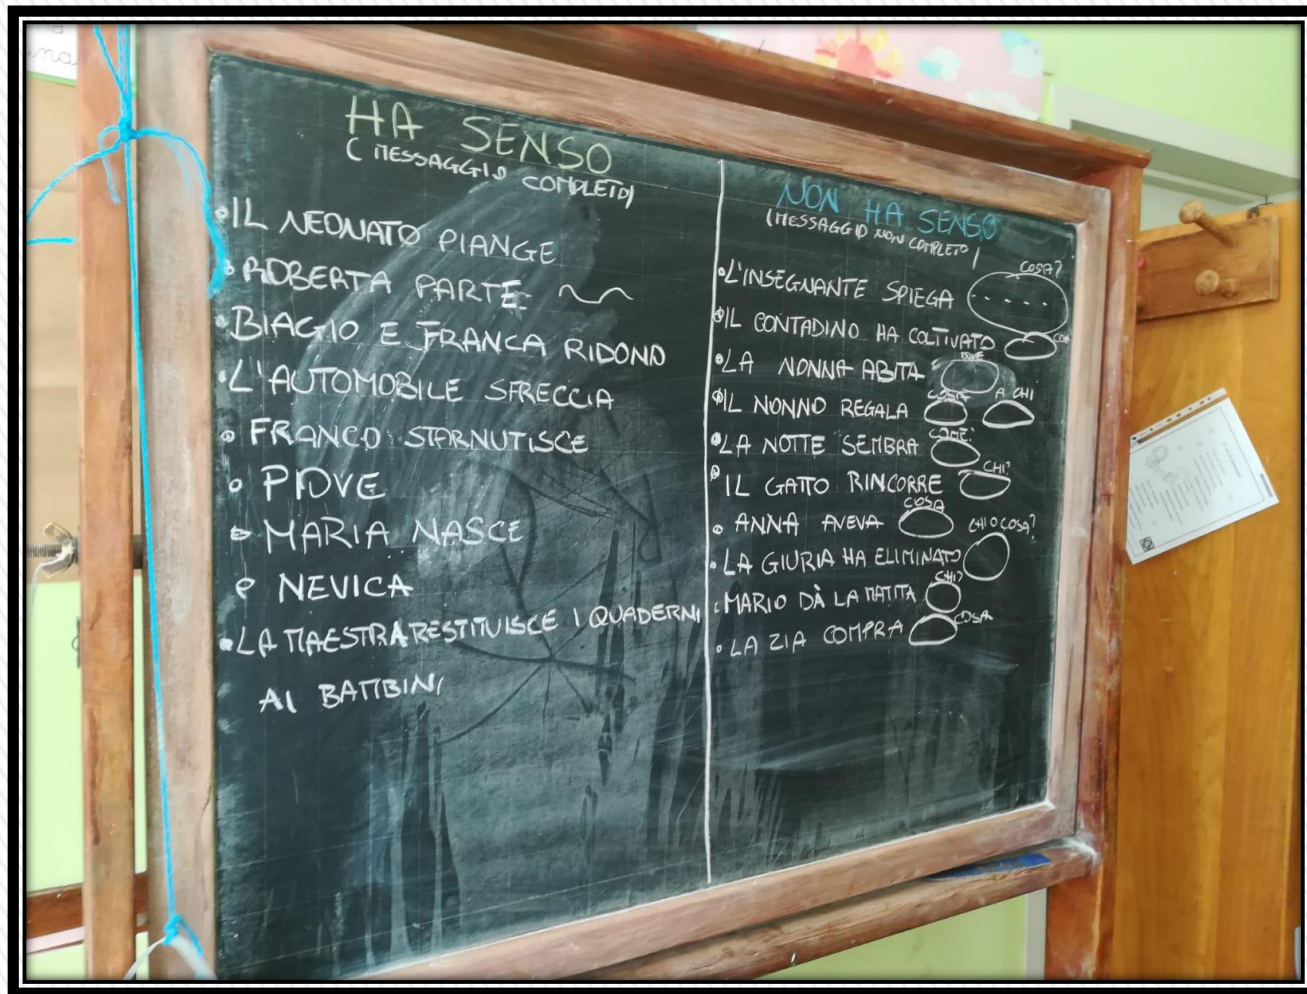 HA SENSO
(MESSAGGIO COMPLETO)
• IL NEONATO PIANGE
• ROBERTA PARTE
• BIAGIO E FRANCA RIDONO
• L'AUTOMOBILE SFRECCIA
• FRANCO STARNUTISCE
• PIOVE
• MARIA NASCE
• NEVICA
• LA MAESTRA RESTITUISCE I QUADERNI
AI BAMBINI
NON HA SENSO
(MESSAGGIO NON COMPLETO)
COSA?
• L'INSEGNANTE SPIEGA .....
• IL CONTADINO HA COLTIVATO
DOVE
• LA NONNA ABITA
COSA A CHI
• IL NONNO REGALA
COME?
• LA NOTTE SEMBRA
CHI?
• IL GATTO RINCORRE
COSA
• ANNA AVEVA
CHI O COSA?
• LA GIURIA HA ELIMINATO
CHI?
• MARIO DÀ LA MATITA
COSA
• LA ZIA COMPRA